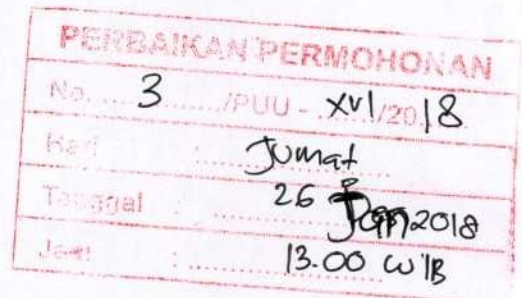 PERBAIKAN PERMOHONAN
No. ....3......../PUU - ..XVI../20.18.
Hari : ....Jumat....
Tanggal : ....26 Jan 2018
Jam : ....13.00 WIB